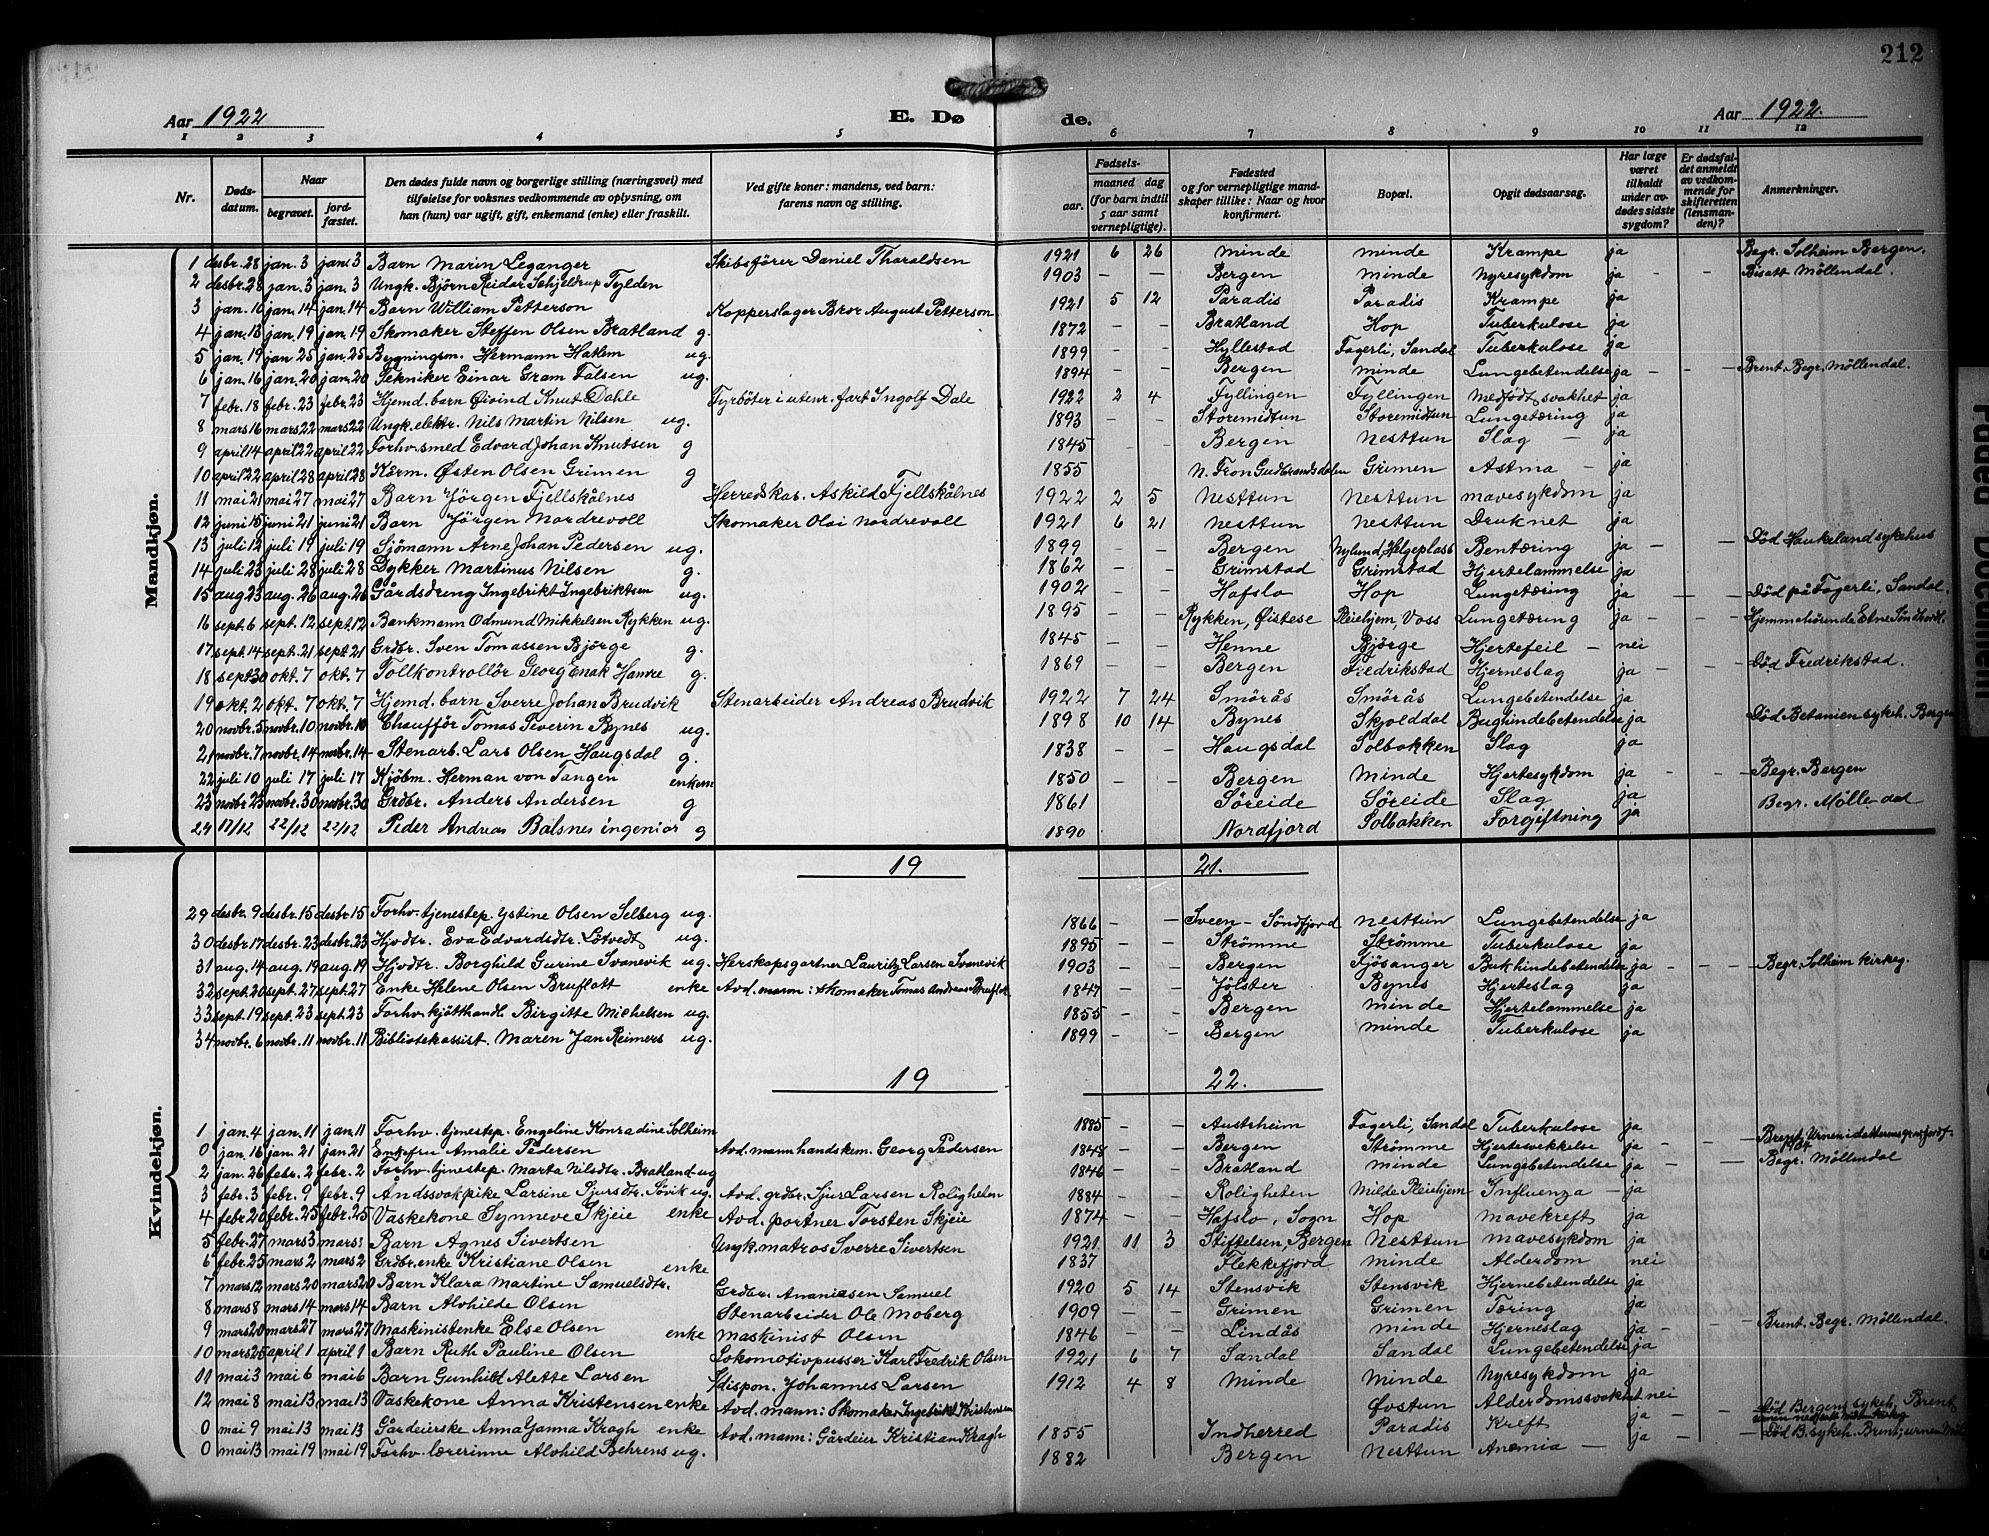 212
Aar 1922
E. Dø
de.
Aar 1922.
1 2 3 4 5 6 7 8 9 10 11 12
Nr. | Dødsdatum. | Naar begravet. | jordfæstet. | Den dødes fulde navn og borgerlige stilling (næringsvei) med tilføielse for voksnes vedkommende av oplysning, om han (hun) var ugift, gift, enkemand (enke) eller fraskilt. | Ved gifte koner: mandens, ved barn: farens navn og stilling. | Fødsels- aar. | maaned dag (for barn indtil 5 aar samt vernepligtige). | Fødested og for vernepligtige mandskaper tillike: Naar og hvor konfirmert. | Bopæl. | Opgit dødsaarsag. | Har læge været tilkaldt under avdødes sidste sygdom? | Er dødsfaldet anmeldt av vedkommende for skifteretten (lensmanden)? | Anmerkninger.
Mandkjøn.
1 desbr. 28 jan. 3 jan. 3 Barn Marin Leganger Skibsfører Daniel Tharaldsen 1921 6 26 Minde Minde Krampe ja Begr. Solheim Bergen.
2 desbr. 28 jan. 3 jan. 3 Ungk. Bjørn Reidar Schjeldrup Tylden 1903 - - Bergen Minde Nyresykdom ja - - Bisatt Möllendal.
3 jan. 10 jan. 14 jan. 14 Barn William Petterson Kopperslager Bror August Petterson 1921 5 12 Paradis Paradis Krampe ja
4 jan. 13 jan. 19 jan. 19 Skomaker Steffen Olsen Bratland g. 1872 - - Bratland Hop Tuberkulose ja
5 jan. 19 jan. 25 jan. 25 Bygningsm. Hermann Hatlem ug. 1899 - - Hyllestad Fagerli, Sandal Tuberkulose ja
6 jan. 16 jan. 20 jan. 20 Tekniker Einar Gram Falsen ug. 1894 - - Bergen Minde Lungebetendelse ja - - Brent. Begr. Möllendal.
7 febr. 18 febr. 23 febr. 23 Hjemd. barn Øivind Knut Dahle Fyrböter i utenr. fart Ingolf Dale 1922 2 4 Fyllingen Fyllingen Medfödt svakhet ja
8 mars 16 mars 22 mars 22 Ungk. elektr. Nils Martin Nilsen ug. 1893 - - Storemidtun Storemidtun Lungetæring ja
9 april 14 april 22 april 22 Forhv. smed Edvard Johan Knutsen g 1845 - - Bergen Nesttun Slag - ja
10 april 22 april 28 april 28 Kærm. Østen Olsen Grimen g 1855 N. Fron Gudbrandsdalen Grimen Astma - ja
11 mai 21 mai 27 mai 27 Barn Jørgen Fjellskålnes Herredskas. Askild Fjellskålnes 1922 2 5 Nesttun Nesttun Mavesykdom ja
12 juni 15 juni 21 juni 21 Barn Jørgen Nordrevoll Skomaker Olai Nordrevoll 1921 6 21 Nesttun Nesttun Druknet ja
13 juli 12 juli 19 juli 19 Sjömann Arne Johan Pedersen ug. 1899 - - Bergen Nylund, Helgeplass Bentæring ja - - Död Haukelandsykehus
14 juli 23 juli 28 juli 28 Dykker Martinus Nilsen g. 1862 - - Grimstad Grimstad Hjertelammelse ja
15 aug 23 aug. 26 aug. 26 Gårdsdreng Ingebrikt Ingebriktsen ug. 1902 - - Hafslo Hop Lungetæring ja - - Död på Fagerli, Sandal.
16 sept. 6 sept. 12 sept. 12 Bankmann Odmund Mikkelsen Rykken ug. 1895 - - Rykken, Øistese Pleiehjem, Voss Lungetæring ja - - Hjemmehörende Etne Sönd hordl.
17 sept. 14 sept. 21 sept. 21 Grdbr. Sven Tomassen Björge g. 1845 - - Henne Björge Hjertefeil - nei
18 sept. 30 okt. 7 okt. 7 Tollkontrollör Georg Enak Hamre g. 1869 - - Bergen Fredrikstad Hjerneslag ja - - Död Fredrikstad.
19 okt. 2 okt. 7 okt. 7 Hjemd. barn Sverre Johan Brudvik Stenarbeider Andreas Brudvik 1922 7 24 Smörås Smörås Lungebetendelse ja
20 novbr. 5 novbr. 10 novbr. 10 Chauffør Tomas Severin Bynes ug. 1898 10 14 Bynes Skjolddal Bughindebetendelse ja Död Betanien sykeh. Bergen
21 novbr. 7 novbr. 14 novbr. 14 Stenarb. Lars Olsen Haugsdal g. 1838 - - Haugsdal Solbakken Slag ja
22 juli 10 juli 17 juli 17 Kjöbm. Herman von Tangen enkem 1850 - - Bergen Minde Hjertesykdom ja - - Begr. Bergen
23 novbr. 23 novbr. 30 novbr. 30 Grdbr. Anders Andersen g 1861 Søreide Søreide Slag ja Begr. Möllendal
24 17/12 22/12 22/12 Peder Andreas Balsnes ingeniør g 1890 Nordfjord Solbakken Forgiftning ja
Kvindekjøn.
19 21.
29 desbr. 9 desbr. 15 desbr. 15 Forhv. tjenestep. Ystine Olsen Selberg ug. 1866 - - Sveen - Söndfjord Nesttun Lungebetendelse ja
30 desbr. 17 desbr. 23 desbr. 23 Hjvdtr. Eva Edvardsdtr. Løtvedt ug. 1895 - - Strömme Strömme Tuberkulose ja
31 aug. 14 aug. 19 aug. 19 Hjvdtr. Borghild Gurine Svanevik ug. Herskapsgartner Lauritz Larsen Svanevik 1903 - - Bergen Fjösanger Bukhindebetendelse ja - - Begr. Solheim kirkeg.
32 sept. 20 sept. 27 sept. 27 Enke Helene Olsen Bruflott enke Avd. mann: skomaker Tomas Andreas Bruflot 1847 - - Jölster Bynes Hjerteslag ja
33 sept. 19 sept. 23 sept. 23 Forhv. kjötthandl. Birgitte Michelsen ug. 1855 - - Bergen Minde Hjertelammelse ja
34 novbr. 6 novbr. 11 novbr. 11 Bibliotekassist. Maren Jan Reimers ug. 1899 - - Bergen Minde Tuberkulose ja
19 22.
1 jan. 4 jan. 11 jan 11 Forhv. tjenestep. Engeline Konradine Solheim 1885 - - Austrheim Fagerli, Sandal Tuberkulose ja
0 jan. 16 jan. 21 jan. 21 Enkefru Amalie Pedersen Avd. mann handskem. Georg Pedersen 1848 - - Bergen Strömme Hjertesvekkelse ja - - Brent
2 jan. 26 febr. 2 febr. 2 Forhv. tjenestep. Marta Nilsdtr. Bratland ug 1846 - - Bratland Minde Lungebetendelse ja - - Begr. Möllendal
3 febr. 3 febr. 9 febr. 9 Åndssvakpike Larsine Sjursdtr. Søvik ug. Avd. grdbr. Sjur Larsen Roligheten 1884 - - Roligheten Milde Pleiehjem Influenza - ja
4 febr. 20 febr. 25 febr. 25 Vaskekone Synneve Skjeie enke Avd. portner Torsten Skjeie 1874 - - Hafslo, Sogn Hop Mavekreft ja
5 febr. 27 mars 3 mars Barn Agnes Sivertsen Ungk. matros Sverre Sivertsen 1921 11 3 Stiftelsen, Bergen Nesttun Mavesykdom ja
6 febr. 25 mars 2 mars 2 Grdbr. enke Kristiane Olsen enke 1837 Flekkefjord Minde Alderdom nei
7 mars 12 mars 20 mars 20 Barn Klara Martine Samuelsdtr. Grdbr. Ananiasen Samuel 1920 5 14 Stensvik Stensvik Hjernebetendelse ja
8 mars 8 mars 14 mars 14 Barn Alvhilde Olsen Stenarbeider Ole Moberg 1909 - - Grimen Grimen Tæring ja
9 mars 20 mars 27 mars 27 Maskinistenke Else Olsen enke Maskinist Olsen 1846 - - Lindås Minde Hjerneslag ja - - Brent. Begr. Möllendal.
10 mars 25 april 1 april 1 Barn Ruth Pauline Olsen Lokomotivpusser Karl Fredrik Olsen 1921 6 7 Sandal Sandal Lungebetendelse ja
11 mai 3 mai 6 mai 6 Barn Gunhild Alette Larsen S/dispon. Johannes Larsen 1912 4 8 Minde Minde Nyresykdom ja
12 mai 8 mai 13 mai 13 Vaskekone Anna Kristensen enke Avd. mann: Skomaker Ingebrikt Kristensen Øvstun Alderdomssvakhet nei
0 mai 9 mai 13 mai 13 Gårdeierske Anna Janna Kragh enke Avd. mann: Gårdeier Kristian Kragh 1855 Indherred Paradis Kreft ja - - Død Bergens sykeh. Brent
0 mai 13 mai 19 mai 19 Forhv. lærerinne Alvhild Behrens ug. 1882 Bergen Nesttun Anæmia - ja - - Död B. sykeh. Brent; urnen Möl
Faded Document